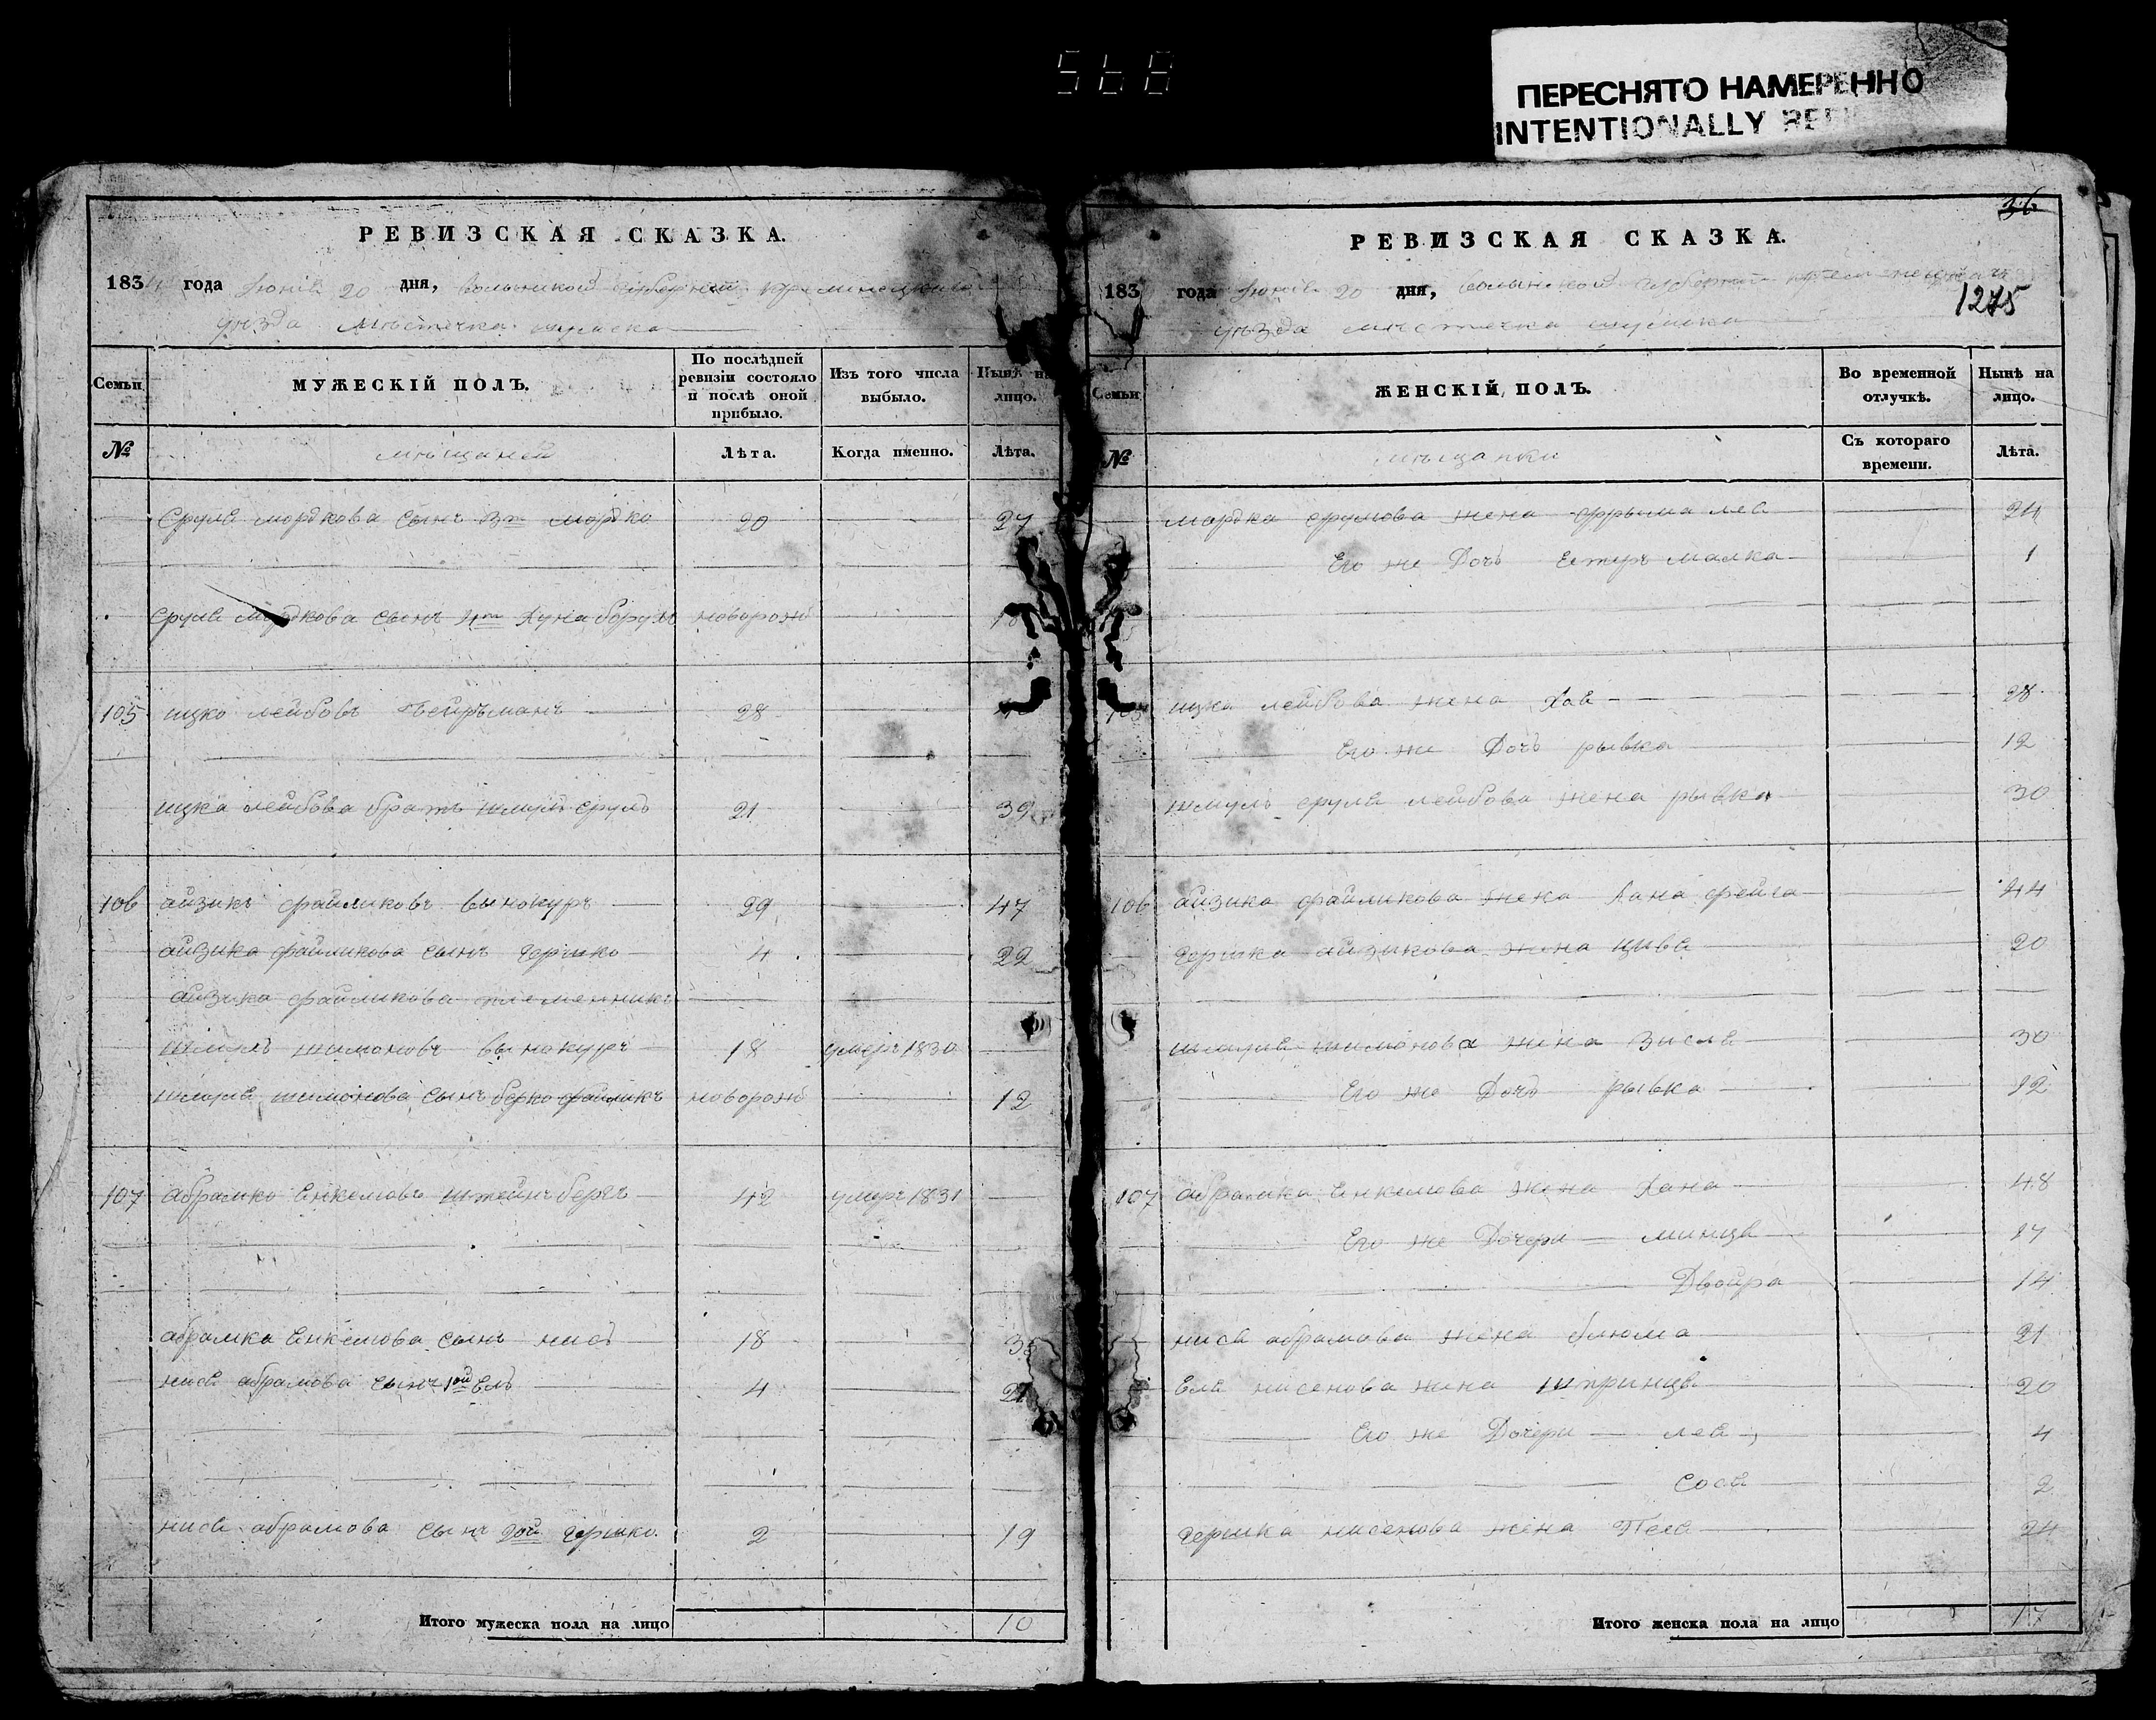 568
ПЕРЕСНЯТО НАМЕРЕННО
INTENTIONALLY
РЕВИЗСКАЯ СКАЗКА.
1834 года Июня 20 дня, Волынской губернии Кременецкого
уѣзда мѣстечка шумска
Семьи
МУЖЕСКІЙ ПОЛЪ.
По послѣдней ревизіи состояло и послѣ оной прибыло.
Изъ того числа выбыло.
Нынѣ на лицо.
№
мѣщане
Лѣта.
Когда именно.
Лѣта.
Сруля мордкова сынъ 3й мордко 20 27
Сруля мордкова сынъ 4й Хуна борухъ новорожд 18
105 ицко лейбовъ 28
ицка лейбова братъ шмуль сруль 21 39
106 айзикъ файликовъ винокуръ 29 47
айзика файликова сынъ гершко 4 22
айзика файликова племенникъ
шмуль шимоновъ винокуръ 18 умеръ 1830
шмуля шимонова сынъ берко файликъ новорожд 12
107 абрамко Енкелювъ штейнъбергъ 42 умеръ 1831
абрамка Енкелюва сынъ нисъ 18
нися абрамова сынъ 1ой Ель 4 21
нися абрамова сынъ 2ой гершко 2 19
Итого мужеска пола на лицо 10
36
РЕВИЗСКАЯ СКАЗКА.
183 года Июня 20 дня, Волынской губернии
1275
уѣзда мѣстечка шумска
Семьи
ЖЕНСКІЙ ПОЛЪ.
Во временной отлучкѣ.
Нынѣ на лицо.
№
мѣщанки
Съ котораго времени.
Лѣта.
мордка срулова жена фрыма леа 24
Его же Дочь Естеръ малка 1
105 ицка лейбова жена Хая 28
Его же Дочь рывка 12
шмуль сруля лейбова жена рывка 30
106 айзика файликова жена Хана фейга 44
гершка айзикова жена цивя 20
шмуля шимонова жена Зисля 30
Его же Дочь рывка 12
107 абрамка Енкелюва жена Хана 48
Его же Дочери минця 17
Двойра 14
нися абрамова жена блюма 21
Еля нисенова жена шпринця 20
Его же Дочери лея 4
Сося 2
гершка нисенова жена 24
Итого женска пола на лицо 17